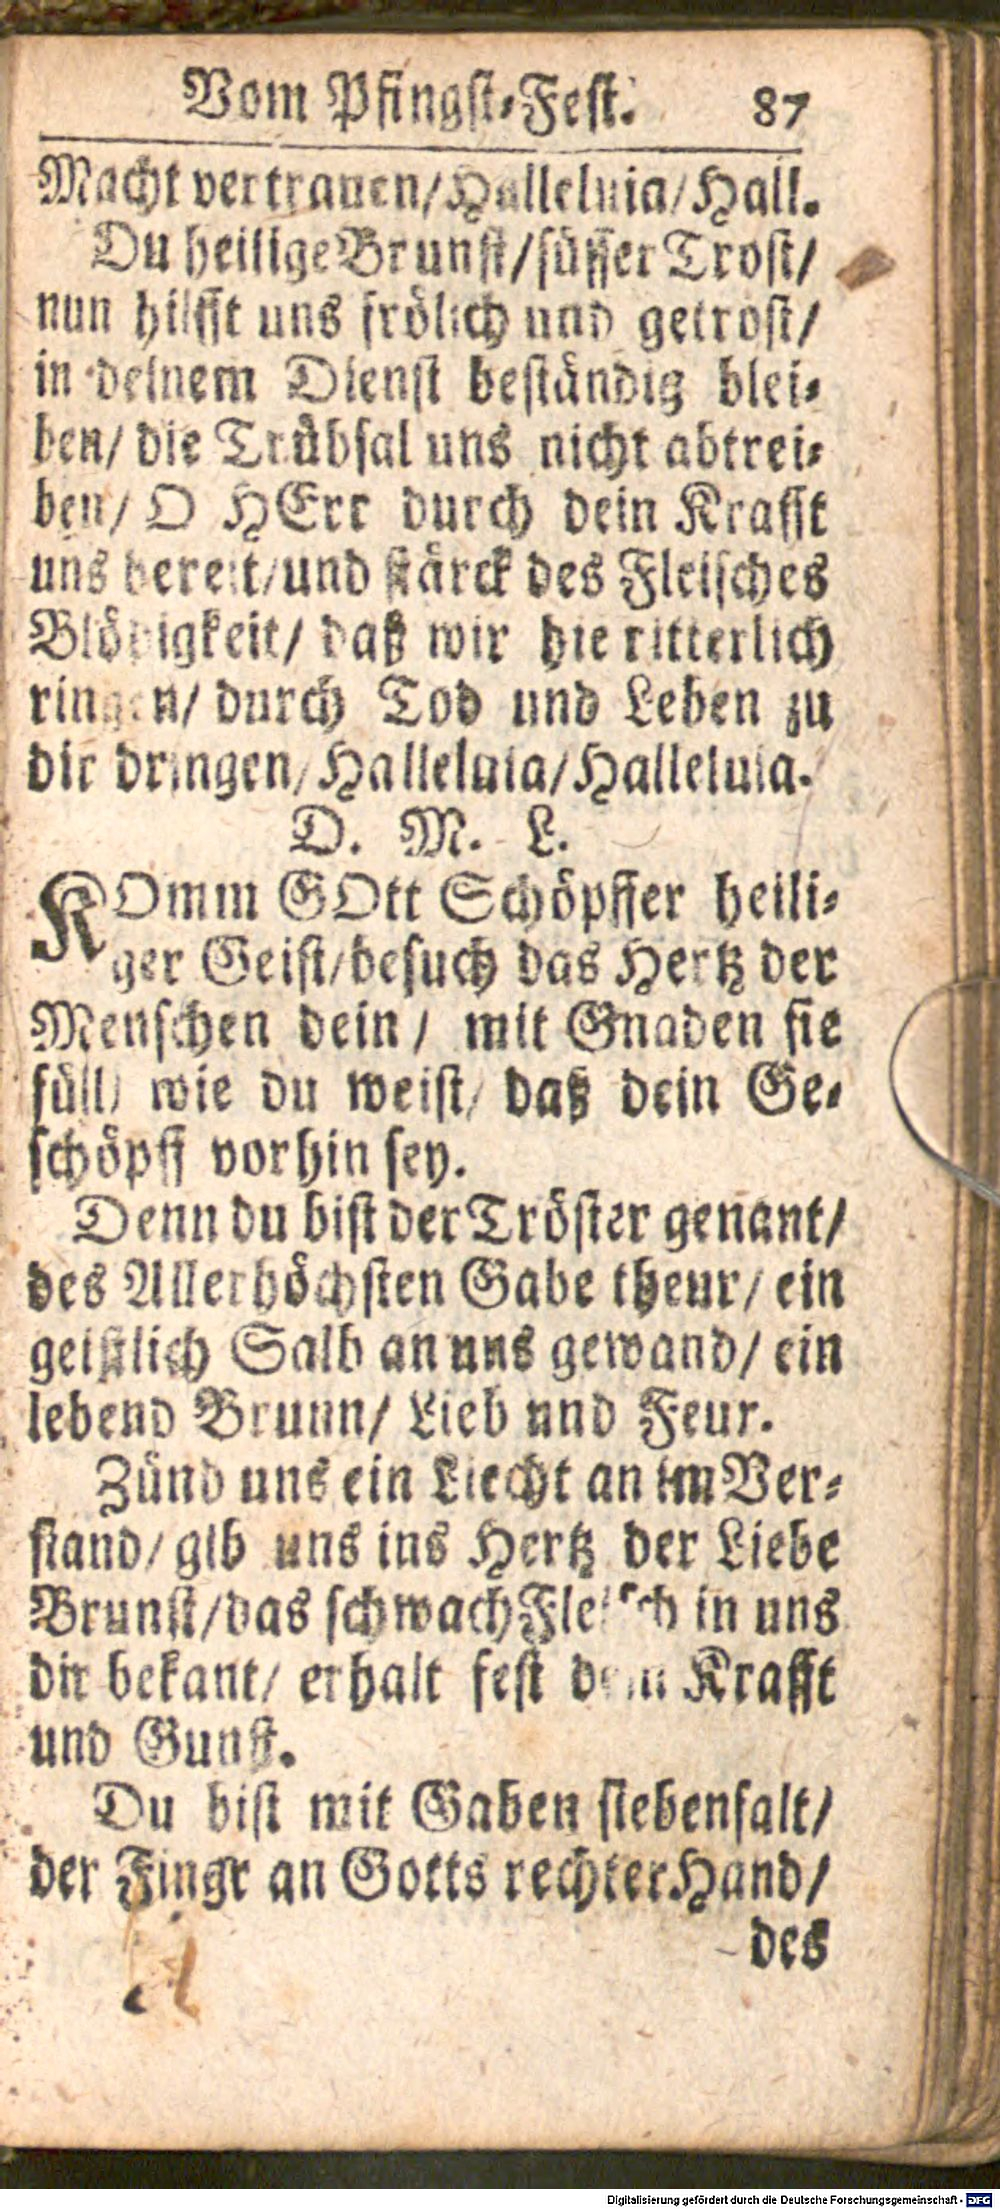 Vom Pfingst-Fest. 87
Macht vertrauen/Halleluia/Hall.
Du heilige Brunst/süsser Trost/
nun hilfft uns frölich und getrost/
in deinem Dienst beständig blei-
ben/ die Trübsal uns nicht abtrei-
ben/ O HErr durch dein Krafft
uns bereit/und stärck des Fleisches
Blödigkeit/ daß wir hie ritterlich
ringen/ durch Tod und Leben zu
dir dringen/Halleluia/Halleluia.
D. M. L.
KOmm GOtt Schöpffer heili-
ger Geist/besuch das Hertz der
Menschen dein/ mit Gnaden sie
füll/ wie du weist/ daß dein Ge-
schöpff vorhin sey.
Denn du bist der Tröster genant/
des Allerhöchsten Gabe theur/ ein
geistlich Salb an uns gewand/ ein
lebend Brunn/ Lieb und Feur.
Zünd uns ein Liecht an im Ver-
stand/ gib uns ins Hertz der Liebe
Brunst/das schwach Fleisch in uns
dir bekant/ erhalt fest dein Krafft
und Gunst.
Du bist mit Gaben siebenfalt/
der Fingr an Gotts rechter Hand/
des
Digitalisierung gefördert durch die Deutsche Forschungsgemeinschaft - DFG